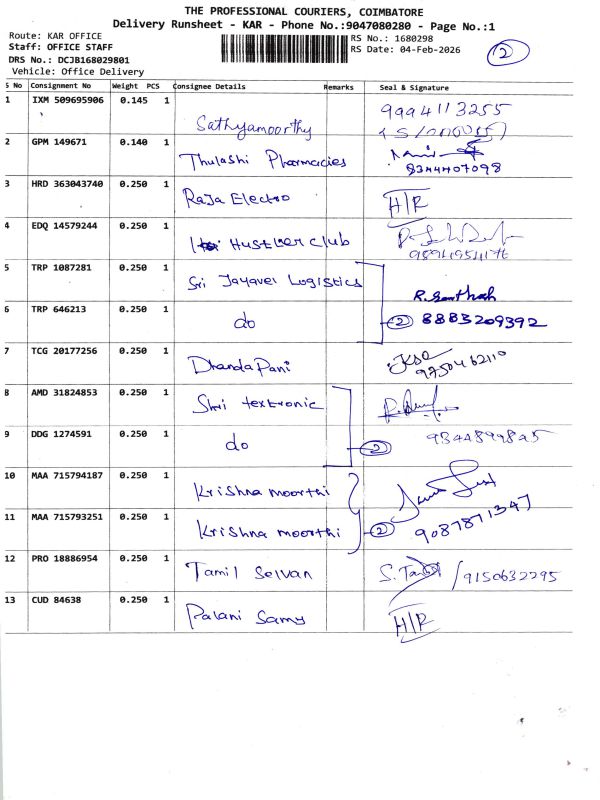 THE PROFESSIONAL COURIERS, COIMBATORE
Delivery Runsheet - KAR - Phone No.:9047080280 - Page No.:1
Route: KAR OFFICE
RS No.: 1680298
Staff: OFFICE STAFF
RS Date: 04-Feb-2026
2
DRS No.: DCJB168029801
Vehicle: Office Delivery
S No Consignment No Weight PCS Consignee Details Remarks Seal & Signature
1 IXM 509695906 0.145 1 Sathyamoorthy 9994113255
2 GPM 149671 0.140 1 Thulashi Pharmacies 8344407098
3 HRD 363043740 0.250 1 Raja Electro H/R
4 EDQ 14579244 0.250 1 Hustler club
5 TRP 1087281 0.250 1 Sri Jayavel Logistics
6 TRP 646213 0.250 1 do 2 8883209392
7 TCG 20177256 0.250 1 DhandaPani 9750462110
8 AMD 31824853 0.250 1 Shri textronic
9 DDG 1274591 0.250 1 do 2
10 MAA 715794187 0.250 1 Krishna moorthi
11 MAA 715793251 0.250 1 Krishna moorthi 2 9087871347
12 PRO 18886954 0.250 1 Tamil Selvan /9150632295
13 CUD 84638 0.250 1 Palani Samy H/R